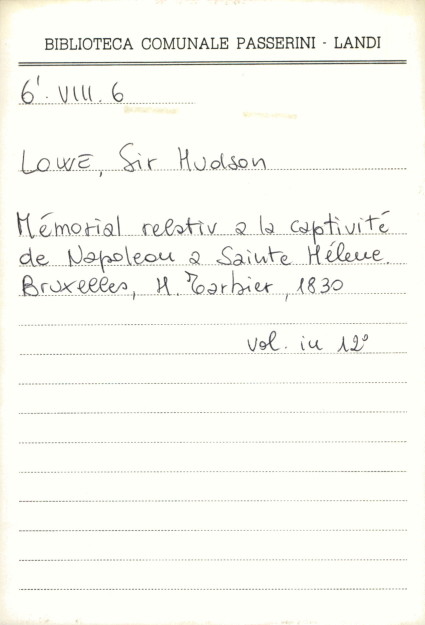 BIBLIOTECA COMUNALE PASSERINI - LANDI
6'. VIII. 6
LOWE, Sir Hudson
Mémorial relativ a la captivité
de Napoleon a Sainte Hélene.
Bruxelles, H. Tarbier, 1830
vol. in 12°